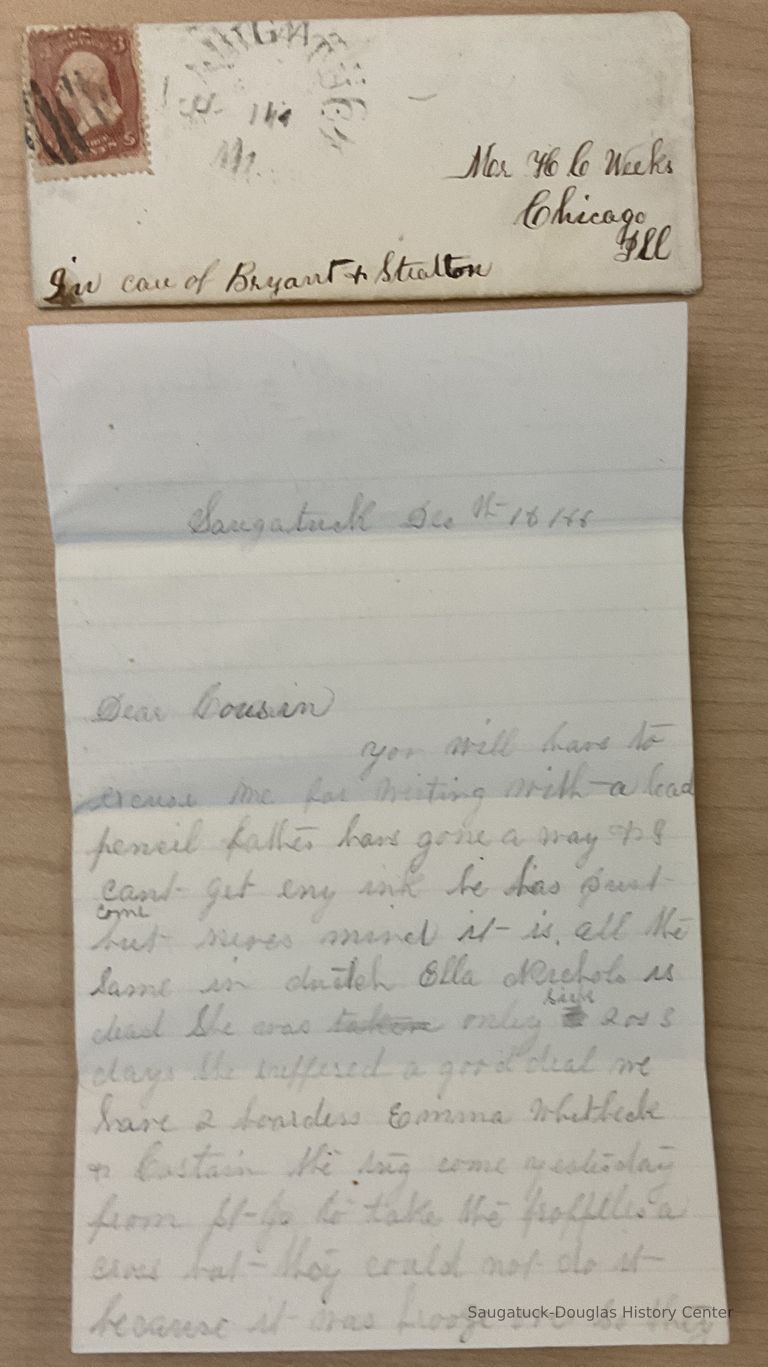 SAUGATUCK
Mer H C Weeks
Chicago
Ill
In care of Bryant & Stratton
Saugatuck Dec
Dear Cousin
you will have to
excuse me for writing with a lead
pencil father have gone a way & I
cant get eny ink he has just
come
but never mind it is all the
same in dutch Ella Nichols is
sick
dead She was taken onley 2 or 3
days She suffered a good deal we
have 2 boarders Emma Whitbeck
& Costain the tug come yesterday
from St Jo to take the
cross but they could not do it
because it was froze so they
Saugatuck-Douglas History Center